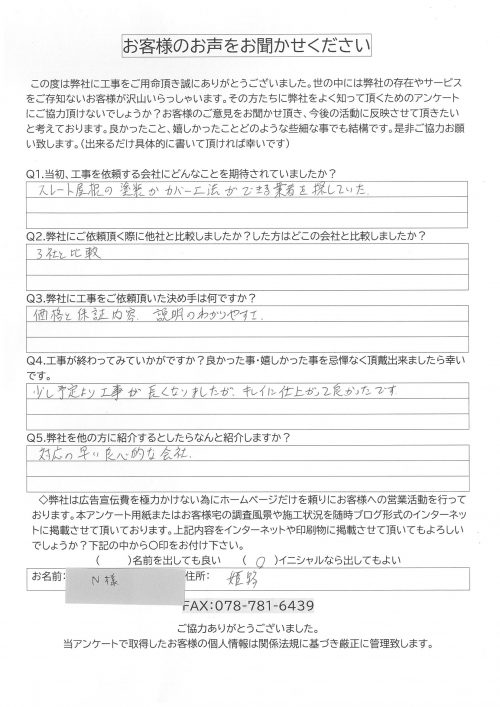 お客様のお声をお聞かせください
この度は弊社に工事をご用命頂き誠にありがとうございました。世の中には弊社の存在やサービス
をご存知ないお客様が沢山いらっしゃいます。その方たちに弊社をよく知って頂くためのアンケート
にご協力頂けないでしょうか？お客様のご意見をお聞かせ頂き、今後の活動に反映させて頂きたい
と考えております。良かったこと、嬉しかったことどのような些細な事でも結構です。是非ご協力お願
い致します。（出来るだけ具体的に書いて頂ければ幸いです）
Q1.当初、工事を依頼する会社にどんなことを期待されていましたか？
スレート屋根の塗装かカバー工法ができる業者を探していた.
Q2.弊社にご依頼頂く際に他社と比較しましたか？した方はどこの会社と比較しましたか？
3社と比較
Q3.弊社に工事をご依頼頂いた決め手は何ですか？
価格と保証内容. 説明のわかりやすさ.
Q4.工事が終わってみていかがですか？良かった事・嬉しかった事を忌憚なく頂戴出来ましたら幸い
です。
少し予定より工事が長くなりましたが、キレイに仕上がって良かったです
Q5.弊社を他の方に紹介するとしたらなんと紹介しますか？
対応の早い良心的な会社.
◇弊社は広告宣伝費を極力かけない為にホームページだけを頼りにお客様への営業活動を行って
おります。本アンケート用紙またはお客様宅の調査風景や施工状況を随時ブログ形式のインターネッ
トに掲載させて頂いております。上記内容をインターネットや印刷物に掲載させて頂いてもよろしい
でしょうか？下記の中から〇印をお付け下さい。
（　　）名前を出しても良い　（ 〇 ）イニシャルなら出してもよい
お名前: N様 住所: 姫路
FAX:078-781-6439
ご協力ありがとうございました。
当アンケートで取得したお客様の個人情報は関係法規に基づき厳正に管理致します。